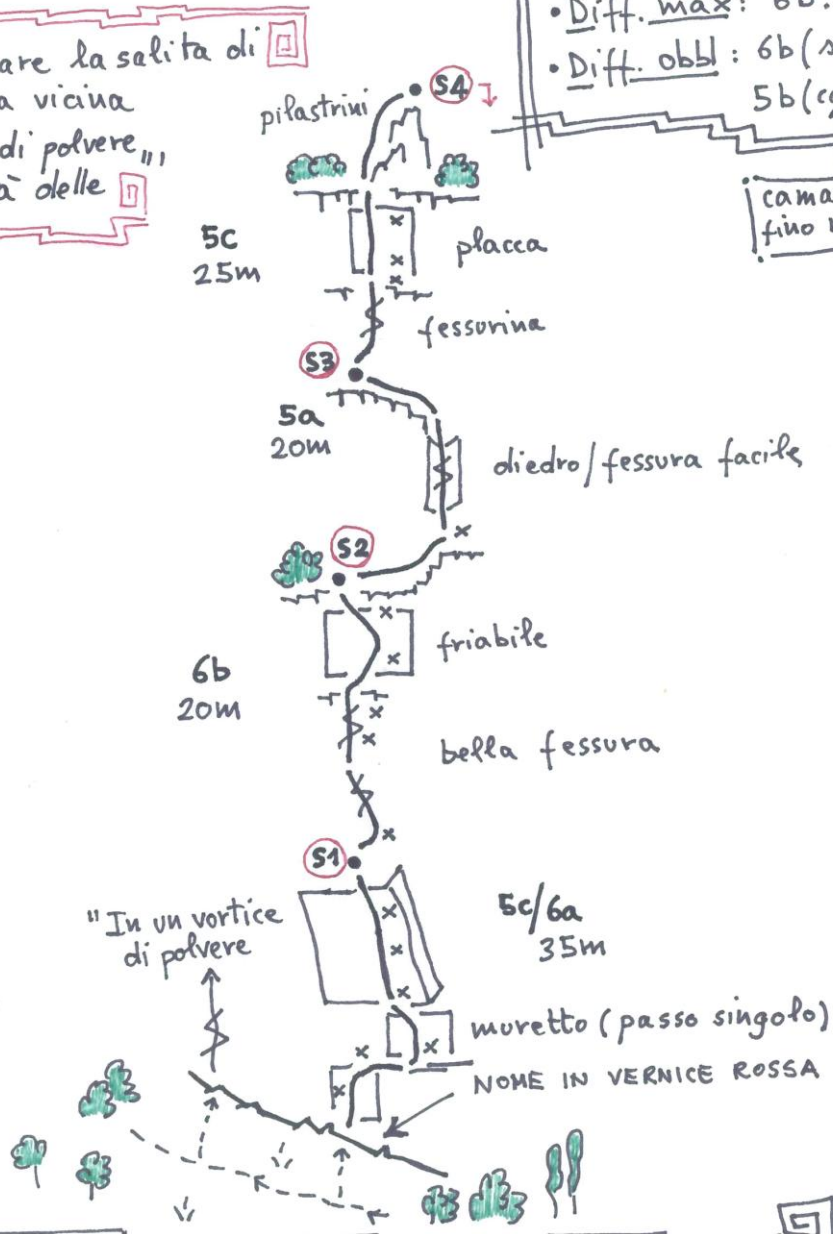 are la salita di
a vicina
di polvere",
à delle
• Diff. max: 6b.
• Diff. obbl: 6b(s
5b(c
cama
fino
pilastrini
S4
5c
25m
placca
fessurina
S3
5a
20m
diedro/fessura facile
S2
friabile
6b
20m
bella fessura
S1
"In un vortice
di polvere
5c/6a
35m
muretto (passo singolo)
NOME IN VERNICE ROSSA